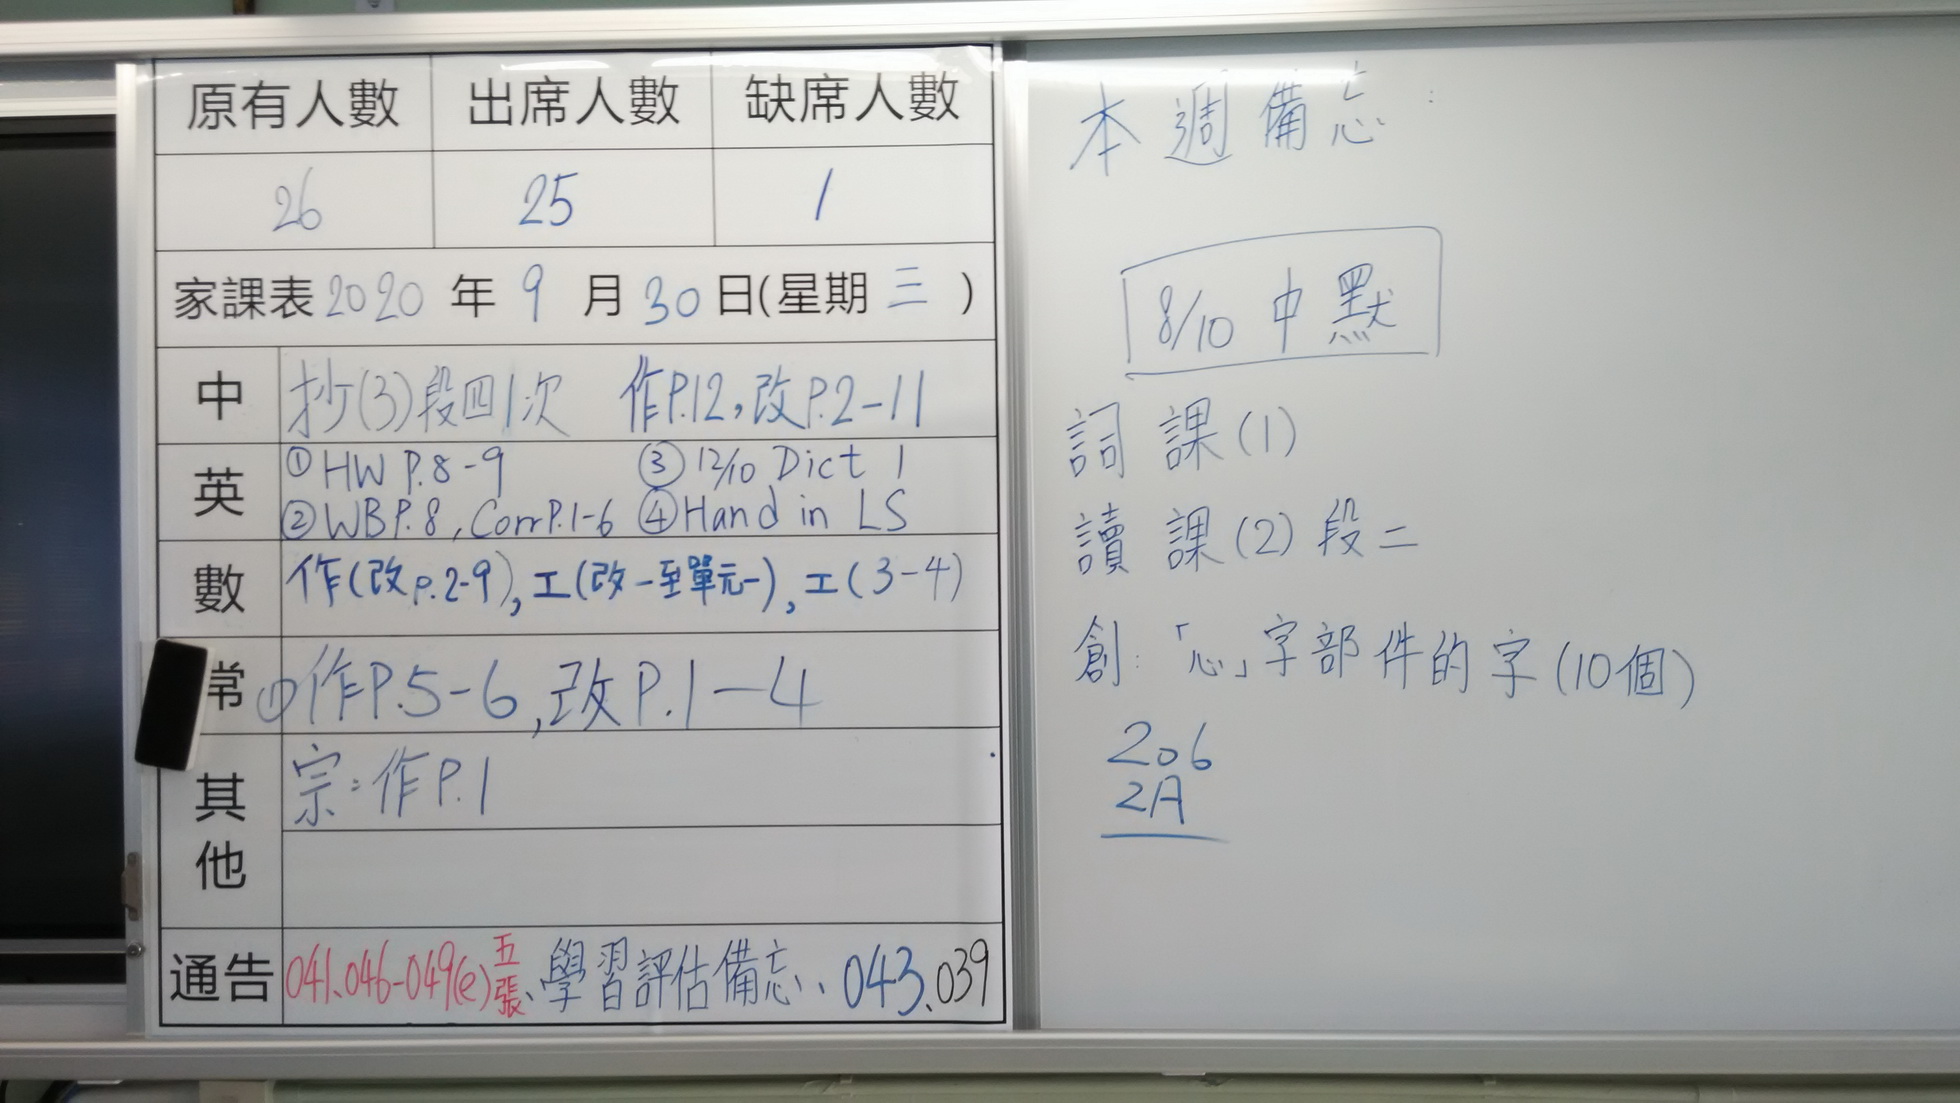 原有人數 出席人數 缺席人數
26 25 1
家課表2020年9月30日(星期三)
中 抄(3)段四1次 作P.12,改P.2-11
英 ①HW P.8-9 ③12/10 Dict 1
②WB P.8, Corr P.1-6 ④Hand in LS
數 作(改p.2-9), 工(改一至單元一), 工(3-4)
常 ①作P.5-6,改P.1-4
其他 宗:作P.1
通告 041、046-049(e)五張、學習評估備忘、043、039
本週備忘:
8/10 中默
詞 課(1)
讀 課(2)段二
創:「心」字部件的字(10個)
206
2A